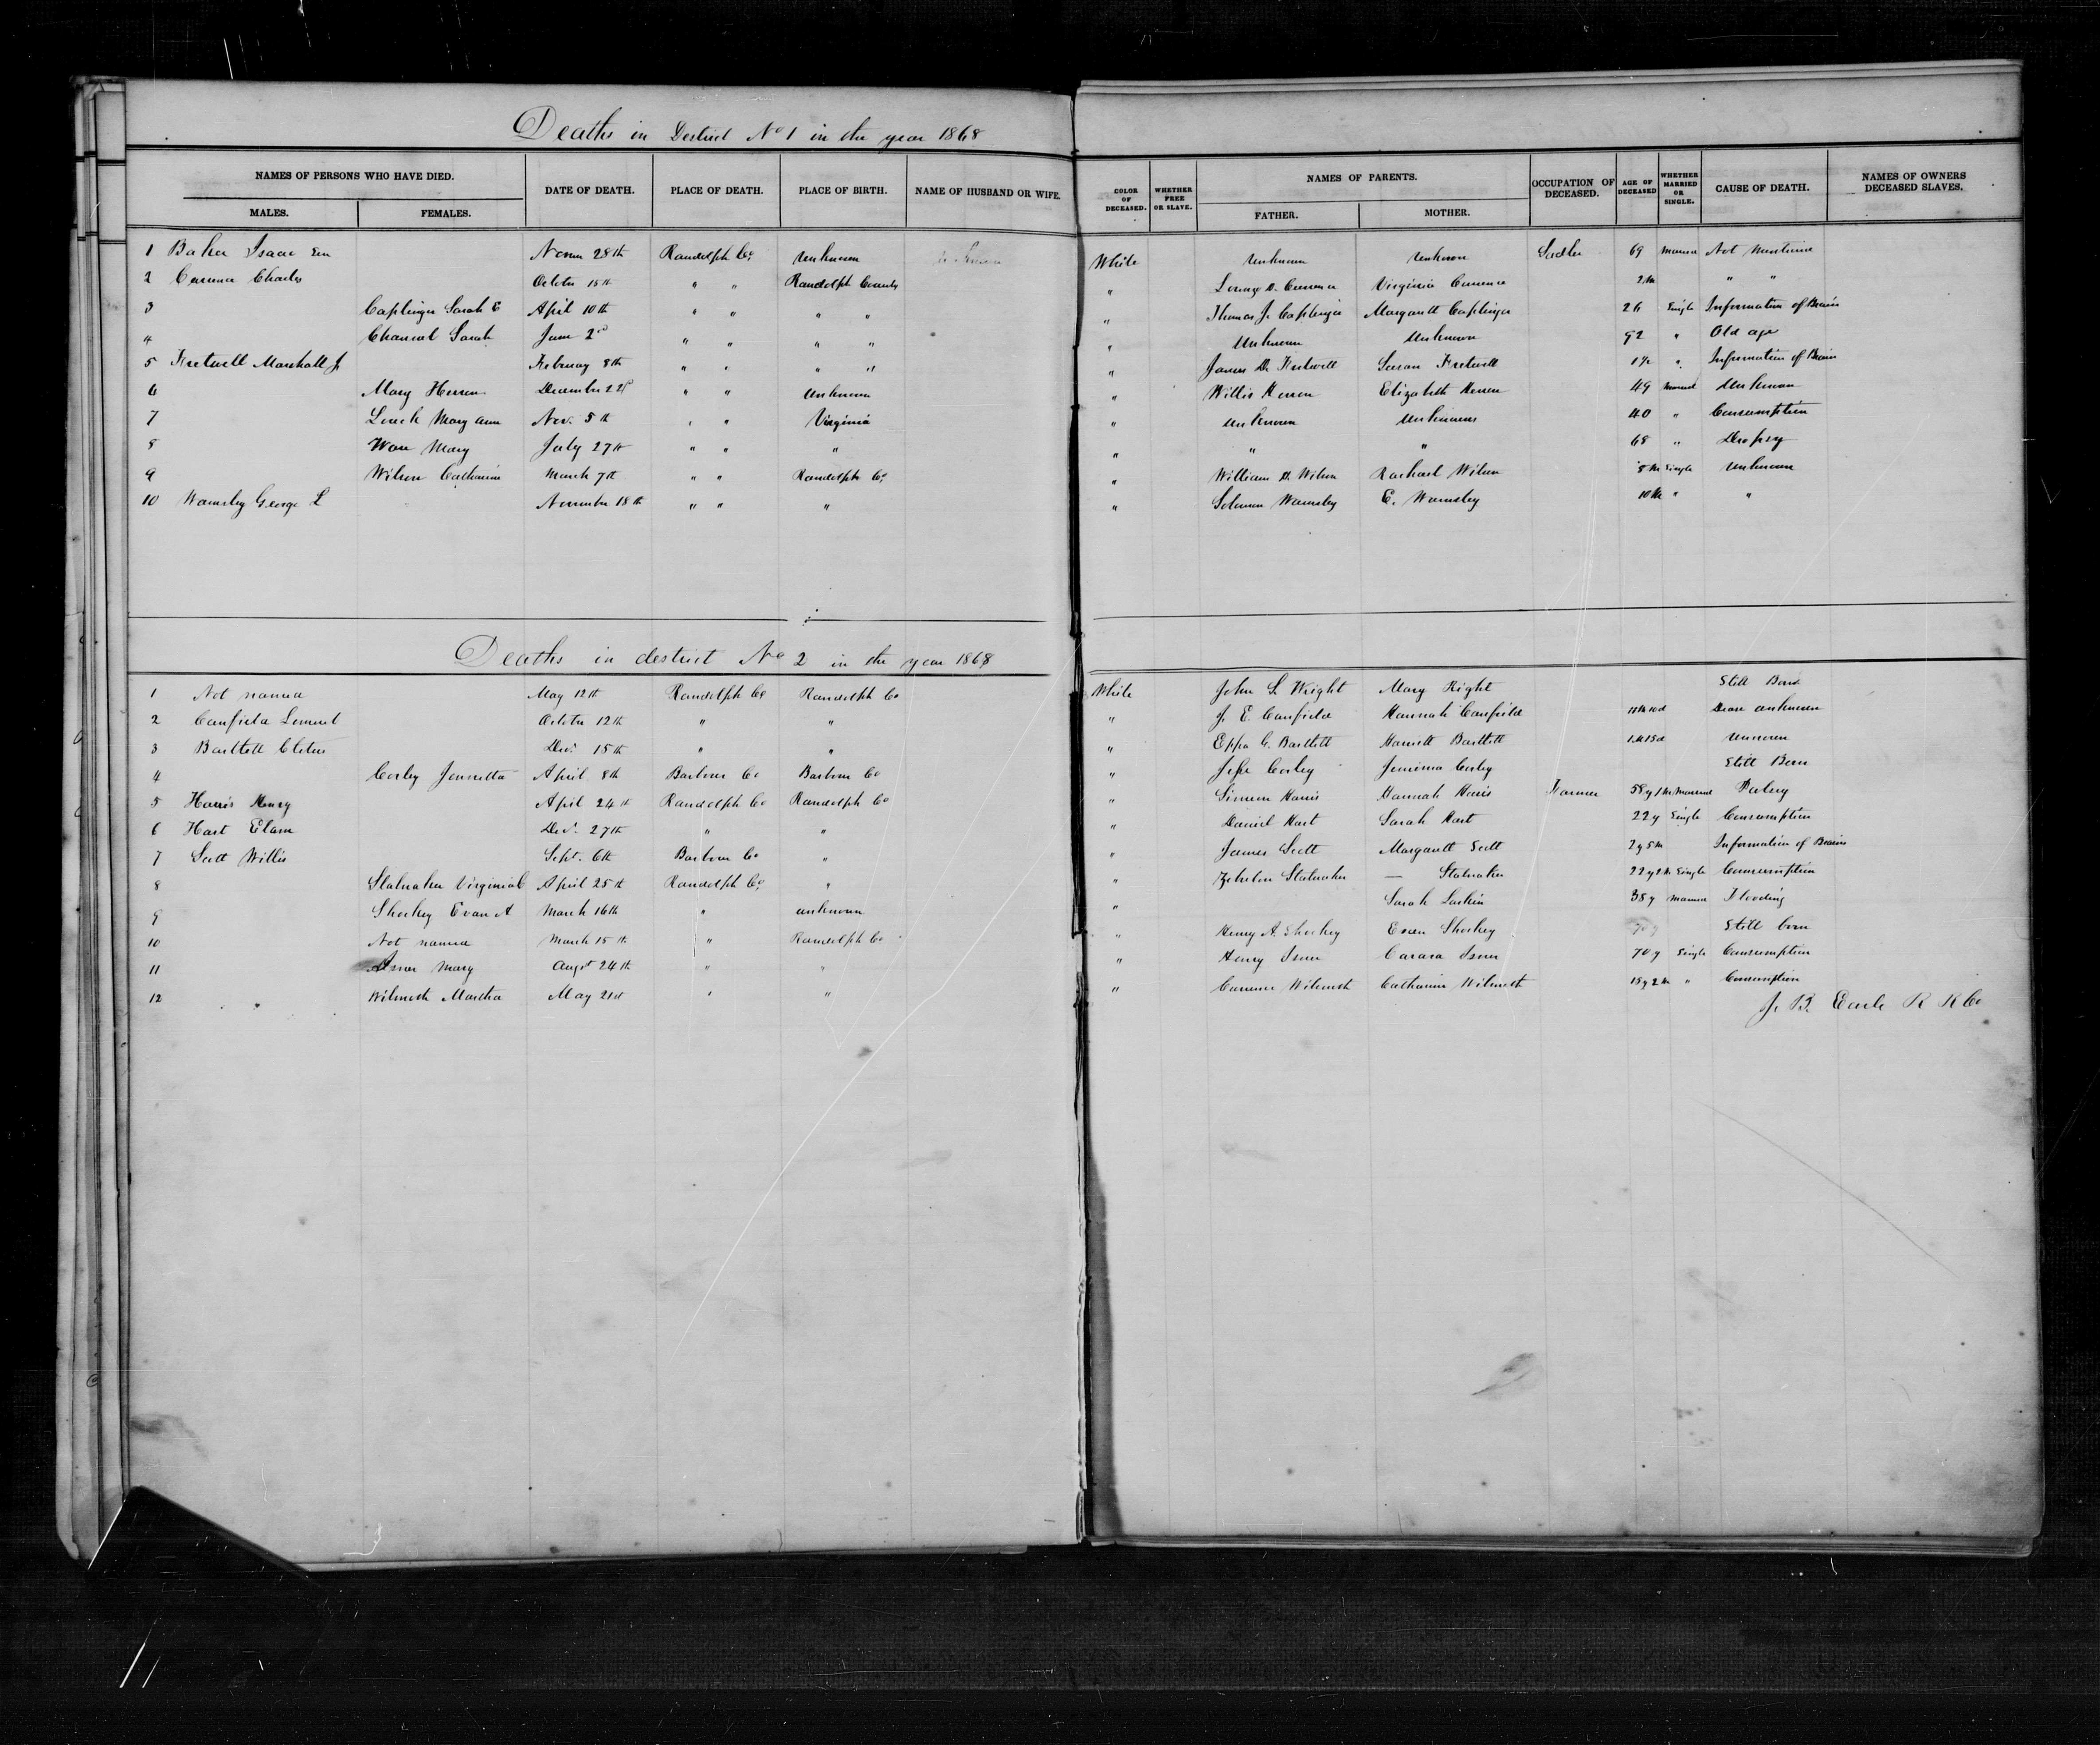 Deaths in Destrict No 1 in the year 1868
NAMES OF PERSONS WHO HAVE DIED. DATE OF DEATH. PLACE OF DEATH. PLACE OF BIRTH. NAME OF HUSBAND OR WIFE. COLOR OF DECEASED. WHETHER FREE OR SLAVE. NAMES OF PARENTS. OCCUPATION OF DECEASED. AGE OF DECEASED WHETHER MARRIED OR SINGLE. CAUSE OF DEATH. NAMES OF OWNERS DECEASED SLAVES.
MALES. FEMALES. FATHER. MOTHER.
1 Baker Isaac Novem 28th Randolph Co. Unknown White Unknown Unknown Sadler 69 Married Not Mentioned
2 Currence Charles October 15th " " Randolph County " Lorenzo D. Currence Virginia Currence 2m " "
3 Caplinger Sarah E April 10th " " " " " Thomas J. Caplinger Margarett Caplinger 26 Single Information of Brain
4 Channel Sarah June 2nd " " " " " Unknown Unknown 92 " Old age
5 Fretwell Marshall J February 8th " " " " " James D. Fretwell Susan Fretwell " Information of Brain
6 Mary Herren December 22d " " Unknown " Willis Herren Elizabeth Herren 49 Married Unknown
7 Mary Ann Nov. 5th " " Virginia " Unknown Unknown 40 " Consumption
8 Mary July 27th " " " " " " 68 " Dropsy
9 Wilson Catharine March 7th " " Randolph Co. " William D. Wilson Rachael Wilson 8m Single Unknown
10 Wamsley George L November 18th " " " " Solomon Wamsley E. Wamsley 10m " "
Deaths in destrict No 2 in the year 1868
1 Not named May 12th Randolph Co Randolph Co White John L. Wright Mary Right Still Born
2 Canfield Lemuel October 12th " " " J. E. Canfield Hannah Canfield unknown
3 Bartlett Cletus Dec. 15th " " " Eppa C. Bartlett Harriett Bartlett 1m 15d
4 Corley Jennetta April 8th Barbour Co Barbour Co " Jesse Corley Jemima Corley Still Born
5 Harris Henry April 24th Randolph Co Randolph Co " Simeon Haris Hannah Haris Farmer 58y 1m Married Palsy
6 Hart Elam Dec. 27th " " " Daniel Hart Sarah Hart 22y Single Consumption
7 Scott Willis Sept. 6th Barbour Co " " James Scott Margarett Scott 2y 5m Information of Brains
8 Stalnaker Virginia April 25th Randolph Co. " " Zebulon Stalnaker — Stalnaker 22y 2m Single Consumption
9 Shockey Evan A March 16th " unknown " Sarah Larkin 38y Married Flooding
10 Not named March 15th " Randolph Co " Henry A. Shockey Evan Shockey Still born
11 Isner Mary August 24th " " " Henry Isner Isner 70y Single Consumption
12 Wilmoth Martha May 21st " " " Currence Wilmoth Catharine Wilmoth 18y 2m " Consumption
J. B. Earle R R Co